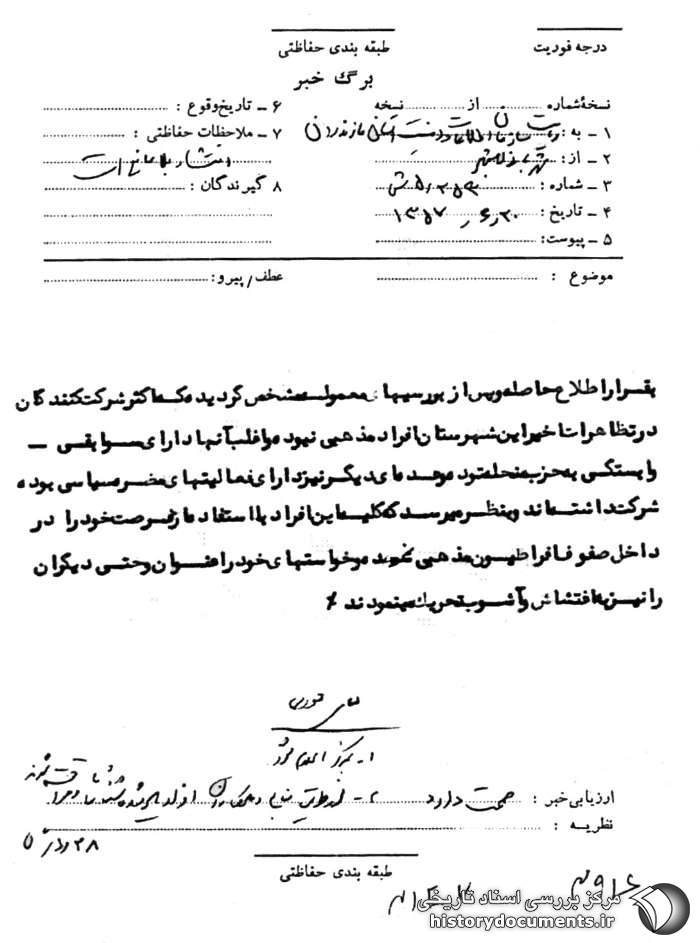 درجه فوریت
طبقه بندی حفاظتی
برگ خبر
نسخهٔ شماره از نسخه
۱ ـ به: ریاست سازمان اطلاعات و امنیت استان مازندران
۲ ـ از:
۳ ـ شماره :
۴ ـ تاریخ : ۱۳۵۷٫۶٫۲۰
۵ ـ پیوست:
۶ ـ تاریخ وقوع :
۷ ـ ملاحظات حفاظتی :
انتشار بلامانع است
۸ گیرندگان :
موضوع :
عطف/پیرو:
بقرار اطلاع حاصله و پس از بررسیهای معموله مشخص گردیده که اکثر شرکت کنندگان
در تظاهرات اخیر این شهرستان افراد مذهبی نبوده و اغلب آنها دارای سوابقی ـ
وابستگی به حزب منحله توده و عده‌ای دیگر نیز دارای فعالیتهای مضره سیاسی بوده
شرکت داشته‌اند و بنظر میرسد که کلیه این افراد با استفاده از فرصت خود را در
داخل صفوف افراطیون مذهبی نموده و خواستهای خود را عنوان و حتی دیگران
را نیز به اغتشاش و آشوب تحریک مینمودند
۱- بمرکز اعلام شود
ارزیابی خبر : صحت دارد ۲-
نظریه :
طبقه بندی حفاظتی
مرکز بررسی اسناد تاریخی
historydocuments.ir